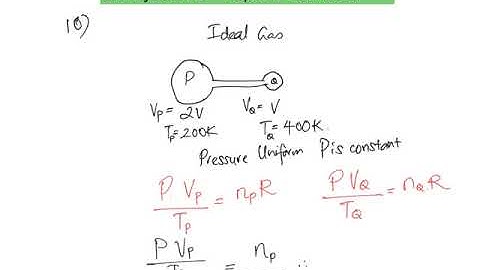 10)
Ideal Gas
P
Q
V_P = 2V
V_Q = V
T_P = 200K
T_Q = 400K
Pressure Uniform P is constant
P V_P / T_P = n_P R
P V_Q / T_Q = n_Q R
P V_P
= n_P